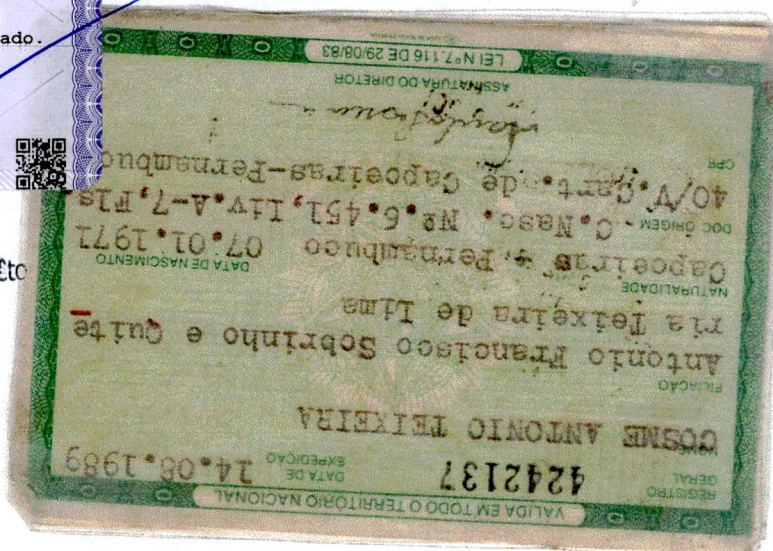 ado.
£to
VALIDA EM TODO O TERRITÓRIO NACIONAL
REGISTRO GERAL 4242137 DATA DE EXPEDIÇÃO 14.08.1989
NOME
COSME ANTONIO TEIXEIRA
FILIAÇÃO
Antonio Francisco Sobrinho e Quite
ria Teixeira de Lima
NATURALIDADE DATA DE NASCIMENTO
Capoeiras - Pernambuco 07.01.1971
DOC ORIGEM C.Nasc. Nº.6.451, Liv.A-7,Fls.
40/V.Cart. de Capoeiras-Pernambuc
CPF
ASSINATURA DO DIRETOR
LEI Nº 7.116 DE 29/08/83